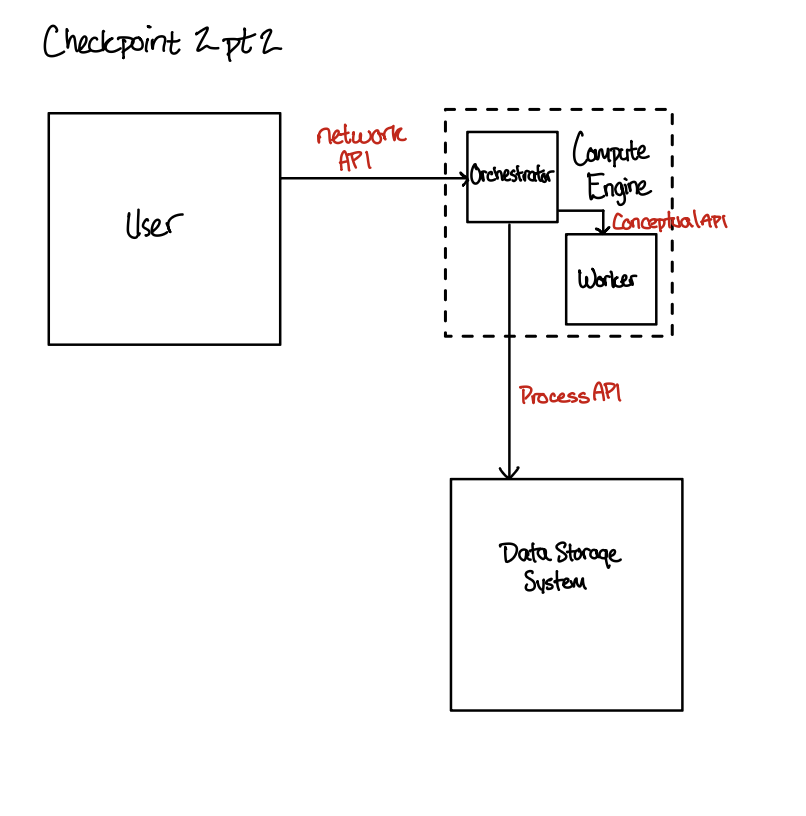 Checkpoint 2 pt 2
network
API
User
Orchestrator
Compute
Engine
Conceptual API
Worker
Process API
Data Storage
System